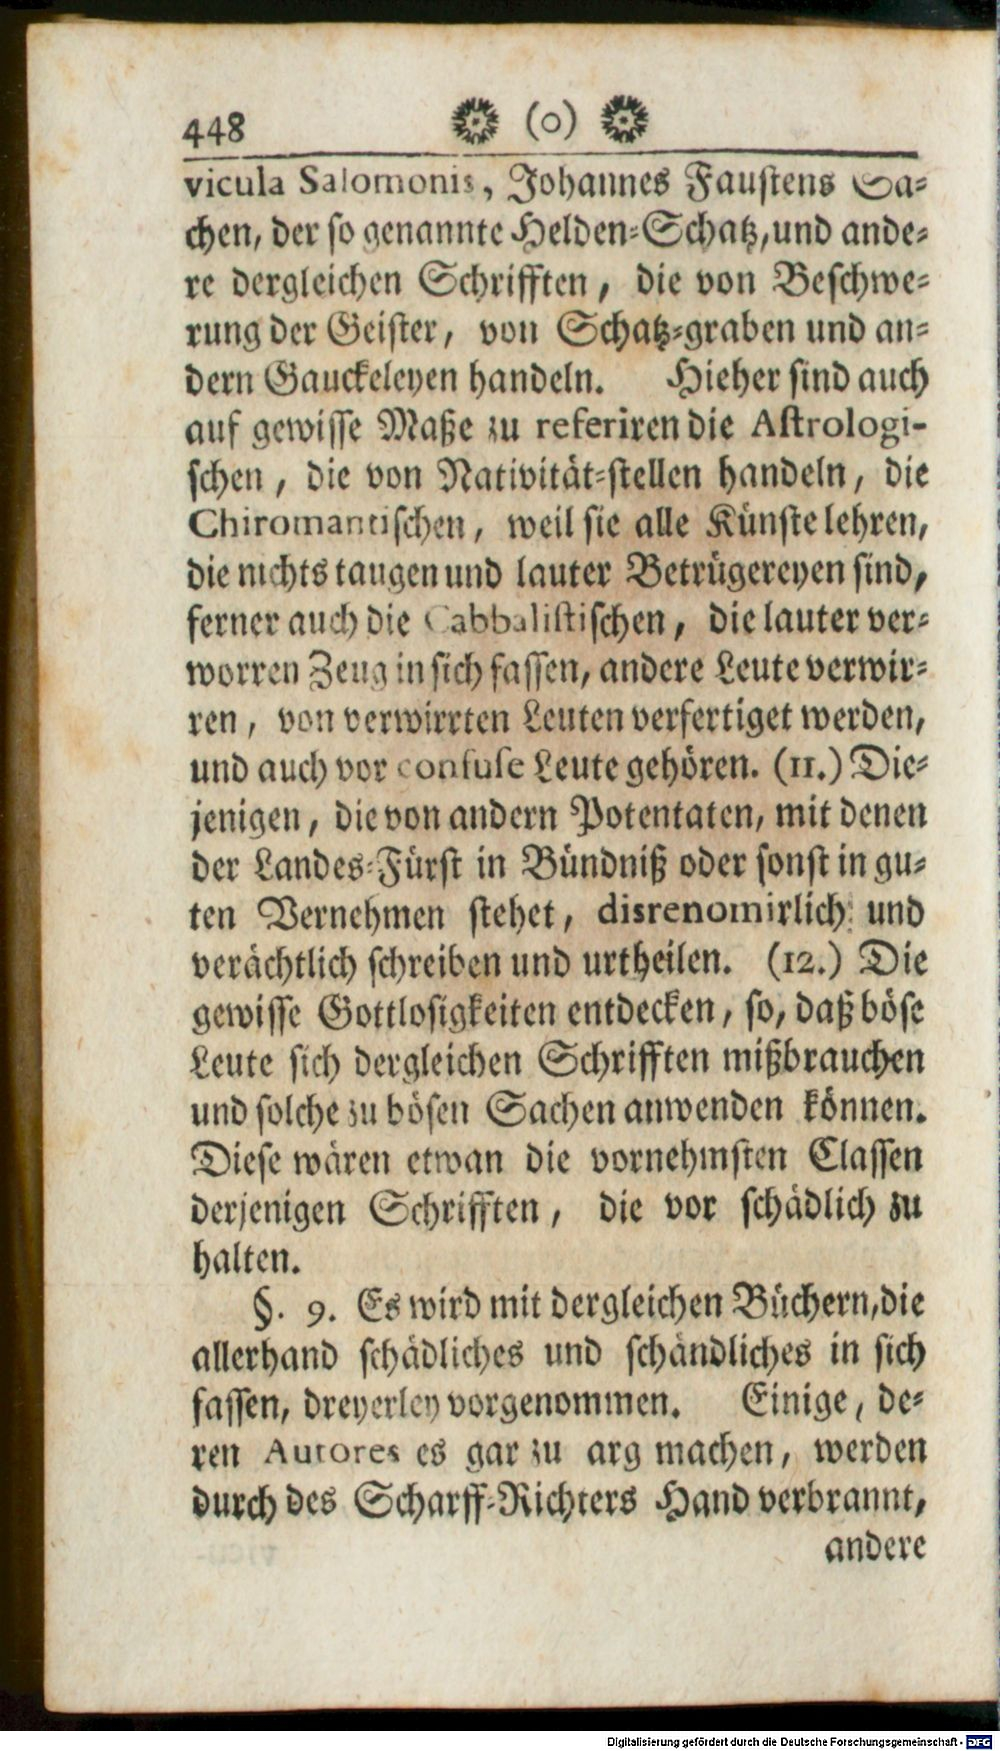 448 (o)
vicula Salomonis, Johannes Faustens Sa-
chen, der so genannte Helden-Schatz, und ande-
re dergleichen Schrifften, die von Beschwe-
rung der Geister, von Schatz-graben und an-
dern Gauckeleyen handeln. Hieher sind auch
auf gewisse Maße zu referiren die Astrologi-
schen, die von Nativität-stellen handeln, die
Chiromantischen, weil sie alle Künste lehren,
die nichts taugen und lauter Betrügereyen sind,
ferner auch die Cabbalistischen, die lauter ver-
worren Zeug in sich fassen, andere Leute verwir-
ren, von verwirrten Leuten verfertiget werden,
und auch vor confuse Leute gehören. (11.) Die-
jenigen, die von andern Potentaten, mit denen
der Landes-Fürst in Bündniß oder sonst in gu-
ten Vernehmen stehet, disrenomirlich und
verächtlich schreiben und urtheilen. (12.) Die
gewisse Gottlosigkeiten entdecken, so, daß böse
Leute sich dergleichen Schrifften mißbrauchen
und solche zu bösen Sachen anwenden können.
Diese wären etwan die vornehmsten Classen
derjenigen Schrifften, die vor schädlich zu
halten.
§. 9. Es wird mit dergleichen Büchern, die
allerhand schädliches und schändliches in sich
fassen, dreyerley vorgenommen. Einige, de-
ren Autores es gar zu arg machen, werden
durch des Scharff-Richters Hand verbrannt,
andere
Digitalisierung gefördert durch die Deutsche Forschungsgemeinschaft - DFG